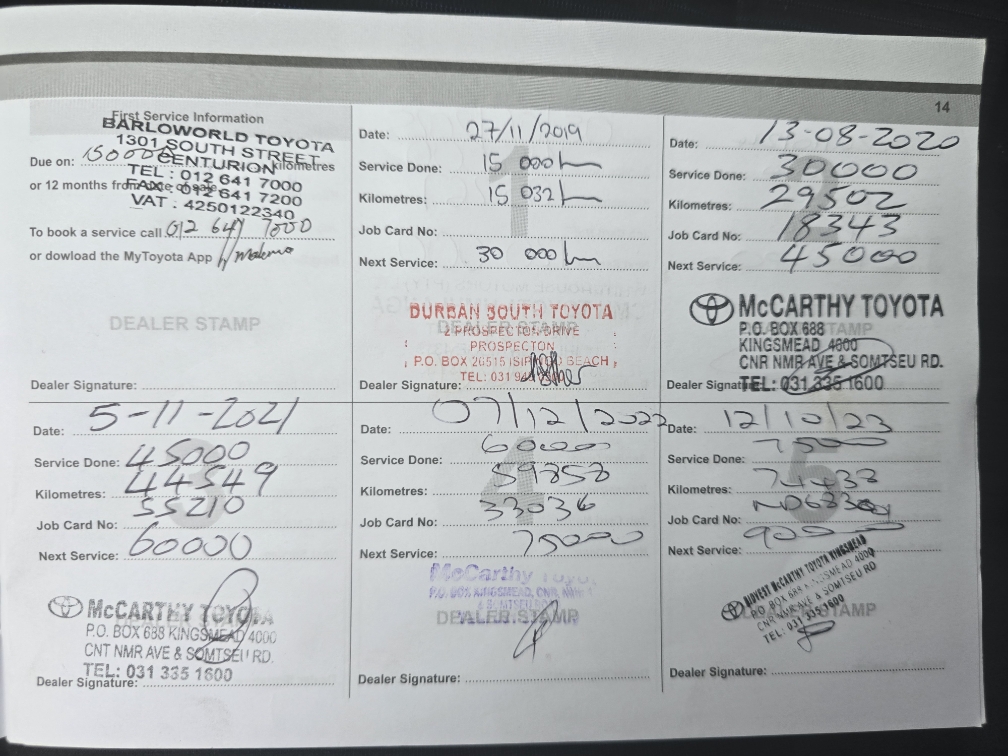 14
First Service Information
BARLOWORLD TOYOTA
1301 SOUTH STREET
CENTURION
Due on: 15000 kilometres
TEL : 012 641 7000
or 12 months from date of sale
FAX : 012 641 7200
VAT . 4250122340
To book a service call 012 641 7000
or dowload the MyToyota App
DEALER STAMP
Dealer Signature:
1
Date: 27/11/2019
Service Done: 15 000 km
Kilometres: 15 032 km
Job Card No:
Next Service: 30 000 km
DURBAN SOUTH TOYOTA
DEALER STAMP
2 PROSPECTON DRIVE
PROSPECTON
P.O. BOX 26515 ISIPINGO BEACH,
TEL: 031
Dealer Signature:
Date: 13-08-2020
Service Done: 30000
Kilometres: 29502
Job Card No: 18343
Next Service: 45000
McCARTHY TOYOTA
P.O. BOX 688
KINGSMEAD 4000
CNR NMR AVE & SOMTSEU RD.
Dealer Signature:
TEL: 031 335 1600
Date: 5-11-2021
Service Done: 45000
Kilometres: 44549
Job Card No: 55210
Next Service: 60000
McCARTHY TOYOTA
P.O. BOX 688 KINGSMEAD 4000
CNT NMR AVE & SOMTSEU RD.
TEL: 031 335 1600
Dealer Signature:
4
Date: 07/12/2022
Service Done: 60000
Kilometres: 59858
Job Card No: 33036
Next Service: 75000
McCarthy Toyota
P.O. BOX KINGSMEAD, CNR NMR
& SOMTSEU
DEALER STAMP
Dealer Signature:
5
Date: 12/10/23
Service Done: 7500
Kilometres: 74438
Job Card No:
Next Service: 90000
BIDVEST McCARTHY TOYOTA KINGSMEAD
P.O. BOX 688 KINGSMEAD 4000
CNR NMR AVE & SOMTSEU RD
TEL: 031 335 1600
STAMP
Dealer Signature: